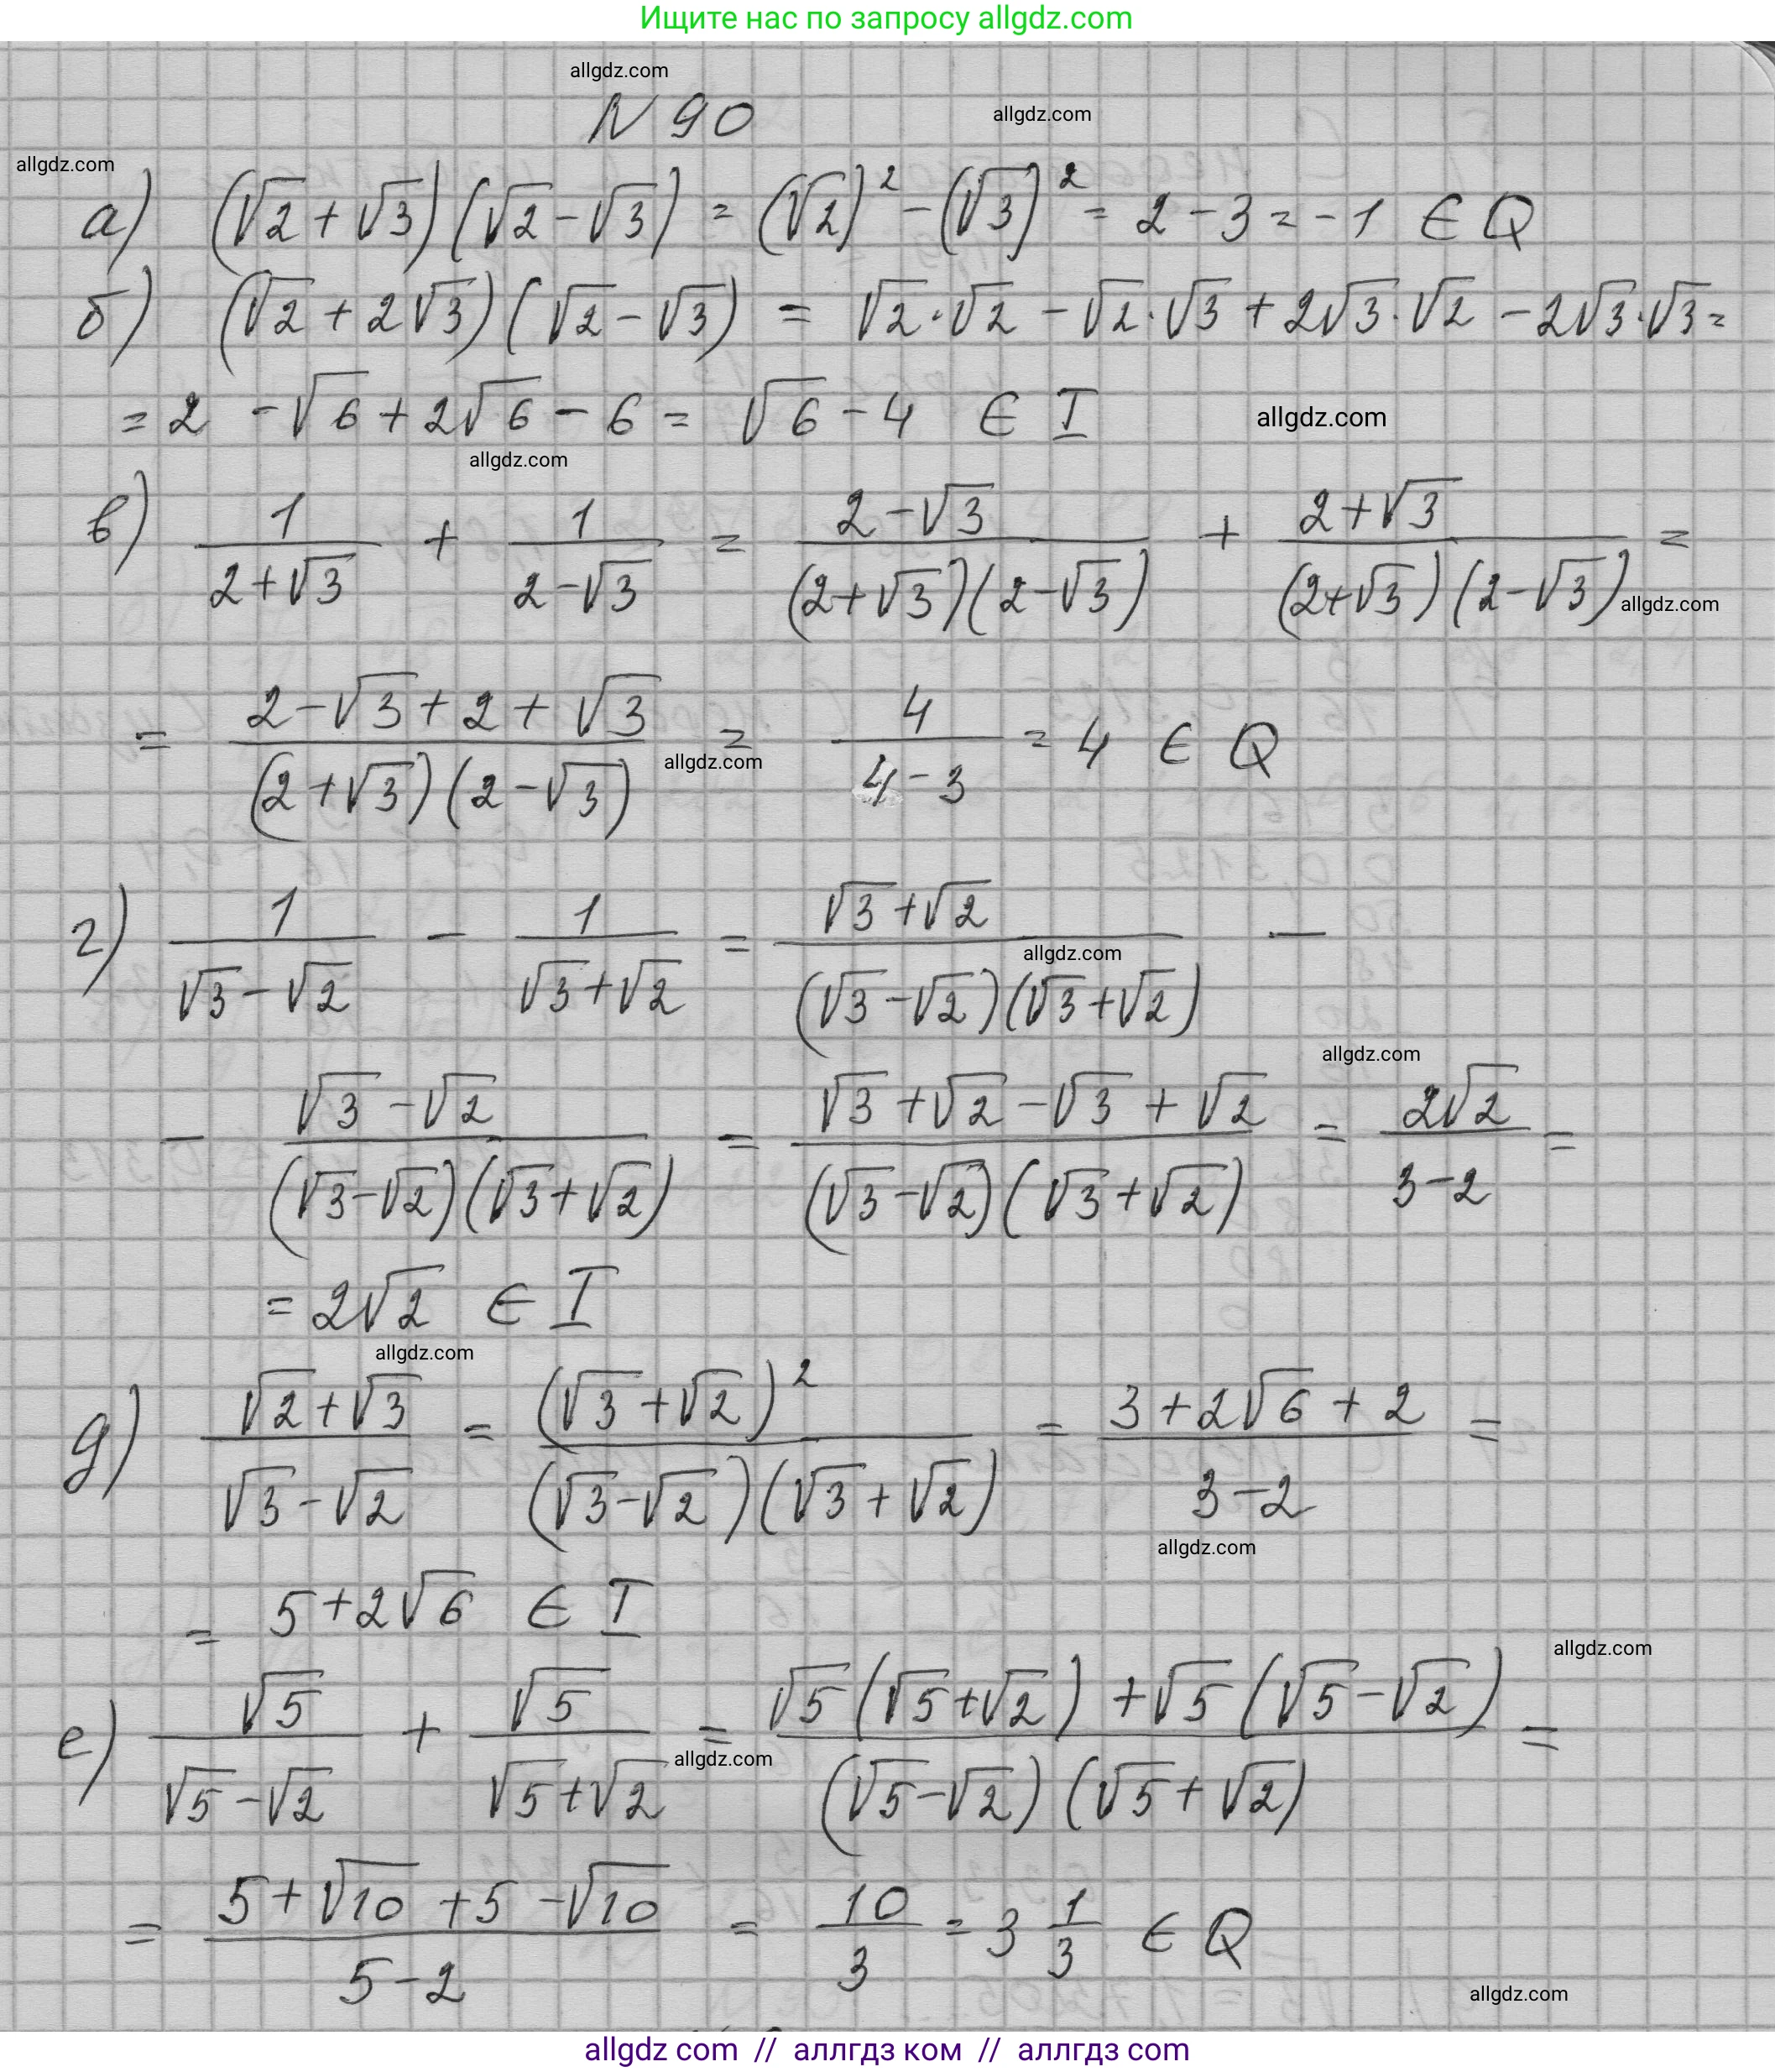 Ищите нас по запросу allgdz.com
allgdz.com
N 90
allgdz.com
allgdz.com
а) (√2 + √3)(√2 - √3) = (√2)² - (√3)² = 2 - 3 = -1 ∈ Q
б) (√2 + 2√3)(√2 - √3) = √2·√2 - √2·√3 + 2√3·√2 - 2√3·√3 =
= 2 - √6 + 2√6 - 6 = √6 - 4 ∈ I
allgdz.com
allgdz.com
в) 1/(2+√3) + 1/(2-√3) = (2-√3)/((2+√3)(2-√3)) + (2+√3)/((2+√3)(2-√3)) =
allgdz.com
= (2-√3+2+√3)/((2+√3)(2-√3)) = 4/(4-3) = 4 ∈ Q
allgdz.com
г) 1/(√3-√2) - 1/(√3+√2) = (√3+√2)/((√3-√2)(√3+√2)) -
allgdz.com
allgdz.com
- (√3-√2)/((√3-√2)(√3+√2)) = (√3+√2-√3+√2)/((√3-√2)(√3+√2)) = 2√2/(3-2) =
= 2√2 ∈ I
allgdz.com
д) (√2+√3)/(√3-√2) = (√3+√2)²/((√3-√2)(√3+√2)) = (3+2√6+2)/(3-2) =
allgdz.com
= 5+2√6 ∈ I
allgdz.com
е) √5/(√5-√2) + √5/(√5+√2) = (√5(√5+√2)+√5(√5-√2))/((√5-√2)(√5+√2)) =
allgdz.com
= (5+√10+5-√10)/(5-2) = 10/3 = 3 1/3 ∈ Q
allgdz.com
allgdz com // аллгдз ком // аллгдз com